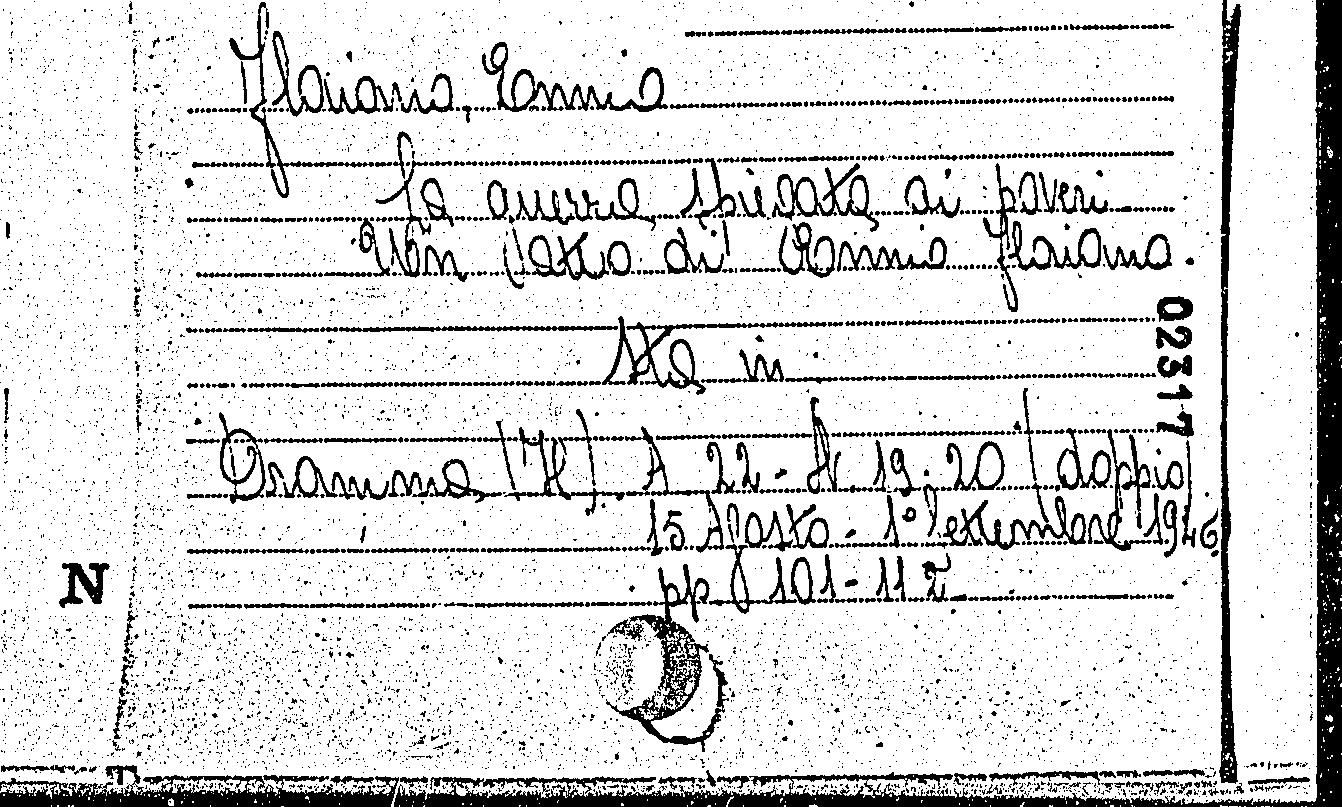 Flaiano, Ennio
La guerra spiegata ai poveri
Un atto di Ennio Flaiano.
Sta in
Dramma, (Il). A 22 - N. 19.20 (doppio)
15 Agosto - 1° Settembre 1946
pp. 101-112
02317
N